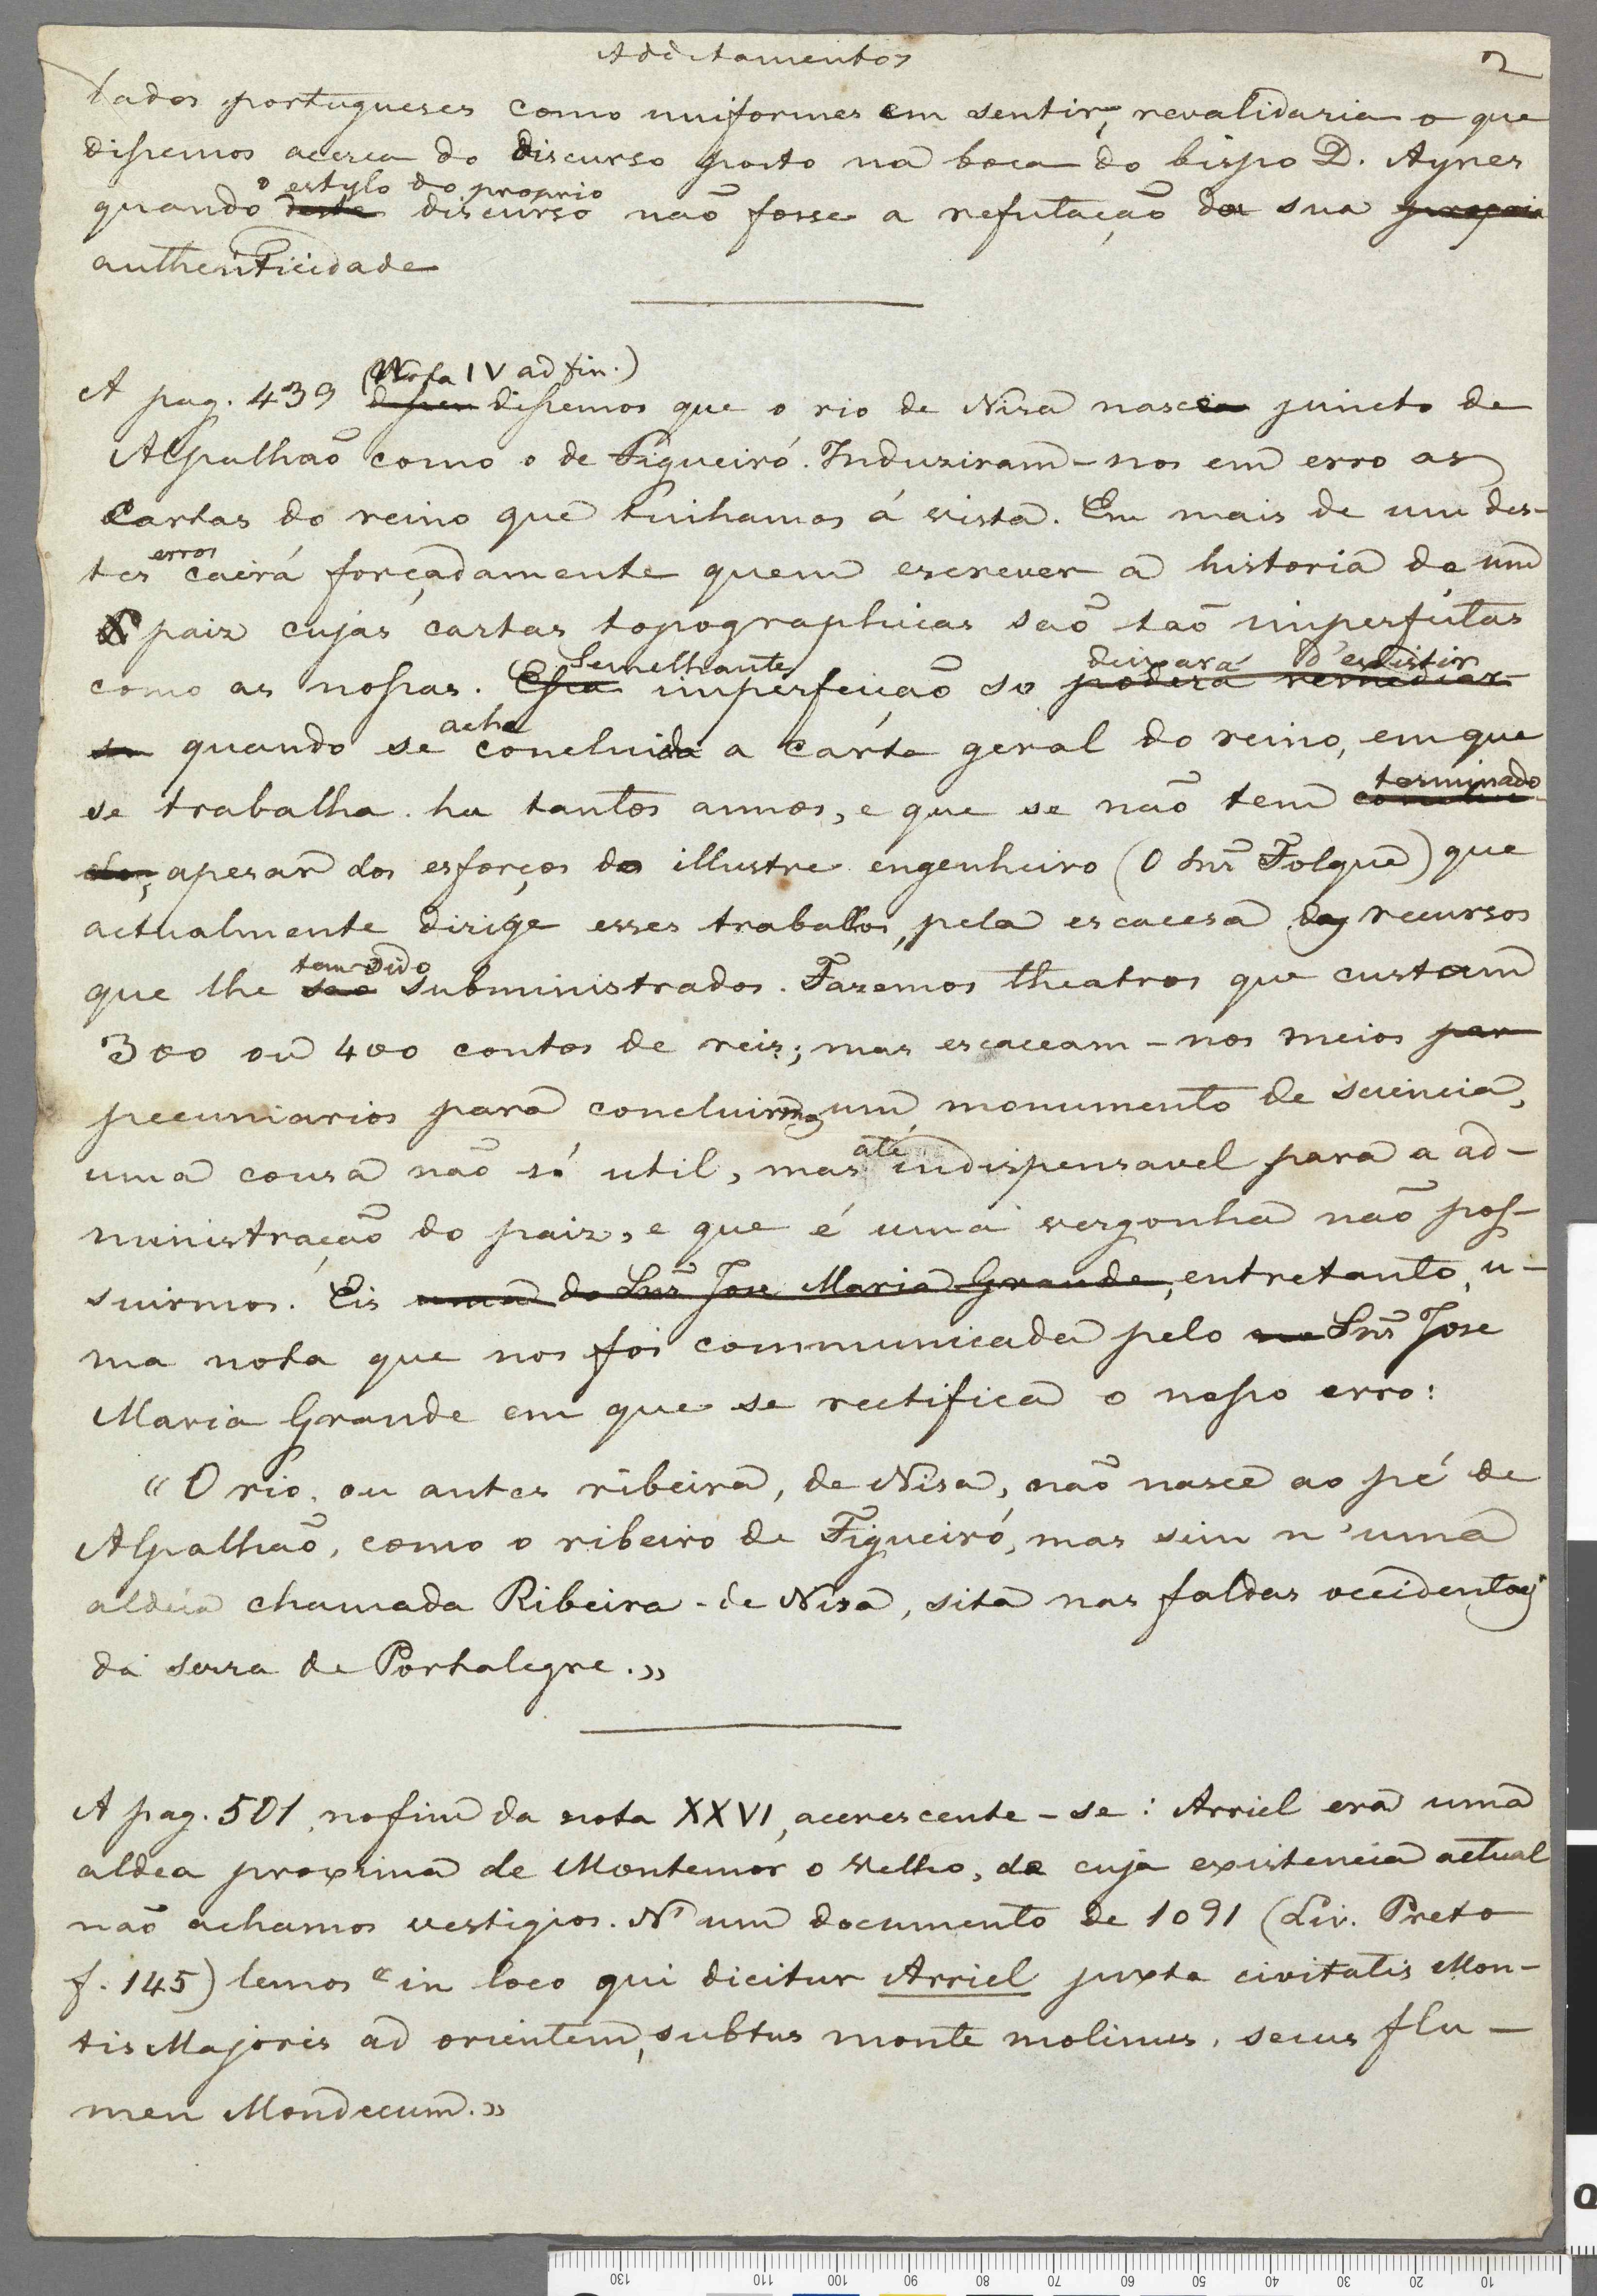 Additamentos 2
dados portugueses como uniformes em sentir, revalidaria o que
dissemos acerca do discurso posto na boca do bispo D. Ayres
o estylo do proprio
quando deste discurso não fosse a refutação da sua propria
authenticidade
(Nota IV ad fin.)
A pag. 439 dissemos que o rio de Nisa nasce juncto de
Alpalhão como o de Figueiró. Induziram-nos em erro as
cartas do reino que tinhamos á vista. Em mais de um des-
erros
tes cairá forçadamente quem escrever a historia de um
paiz cujas cartas topographicas são tão imperfeitas
Semelhante deixará d'existir
como as nossas. Essa imperfeição so poderá remediar-
acha
se quando se concluida a carta geral do reino, em que
terminado
se trabalha ha tantos annos, e que se não tem conclui-
do, apesar dos esforços do illustre engenheiro (O Snr Folque) que
actualmente dirige esses trabalhos, pela escacesa dos recursos
tem sido
que lhe são subministrados. Fazemos theatros que custam
300 ou 400 contos de reis; mas escaceam-nos meios par
pecuniarios para concluirmos um monumento de sciencia,
até
uma cousa não só util, mas indispensavel para a ad-
ministração do paiz, e que é uma vergonha não pos-
suirmos. Eis uma do Snr Jose Maria Grande, entretanto, u-
ma nota que nos foi communicada pelo Snr Jose
Maria Grande em que se rectifica o nosso erro:
«O rio, ou antes ribeira, de Nisa, não nasce ao pé de
Alpalhão, como o ribeiro de Figueiró, mas sim n'uma
aldeia chamada Ribeira-de Nisa, sita nas faldas occidentaes
da serra de Portalegre.»
A pag. 501, no fim da nota XXVI, accrescente-se: Arriel era uma
aldea proxima de Montemor o Velho, de cuja existencia actual
não achamos vestigios. N'um documento de 1091 (Liv. Preto
f. 145) lemos «in loco qui dicitur Arriel juxta civitatis Mon-
tis Majoris ad orientem, subtus monte molinus, secus flu-
men Mondecum.»